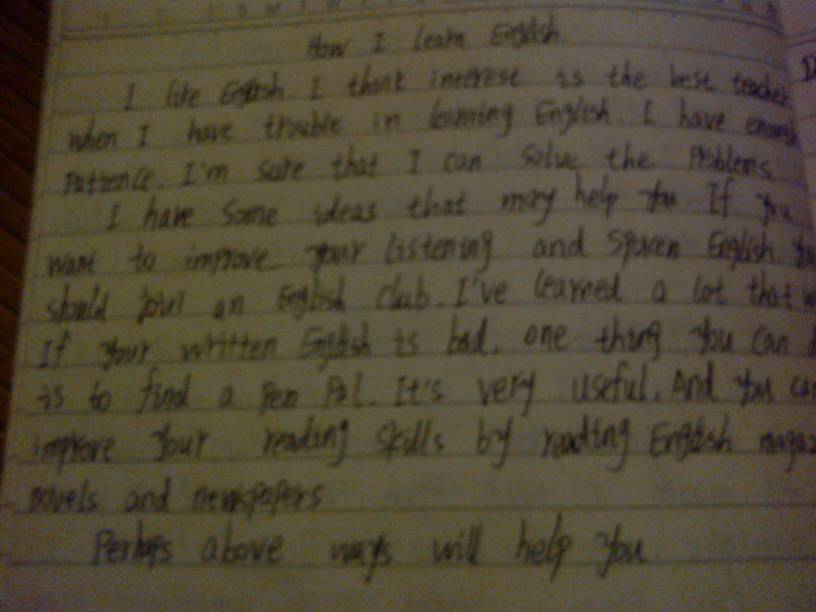 How I learn English.
I like English. I think interest is the best teacher
when I have trouble in learning English. I have enough
Patience. I'm sure that I can solve the Problems.
I have some ideas that may help you. If you
want to improve your listening and spoken English. You
should join an English club. I've learned a lot that w
If your written English is bad, one thing you can d
is to find a Pen Pal. It's very useful. And you can
improve your reading skills by reading English magaz
novels and newspapers.
Perhaps above ways will help you.
D